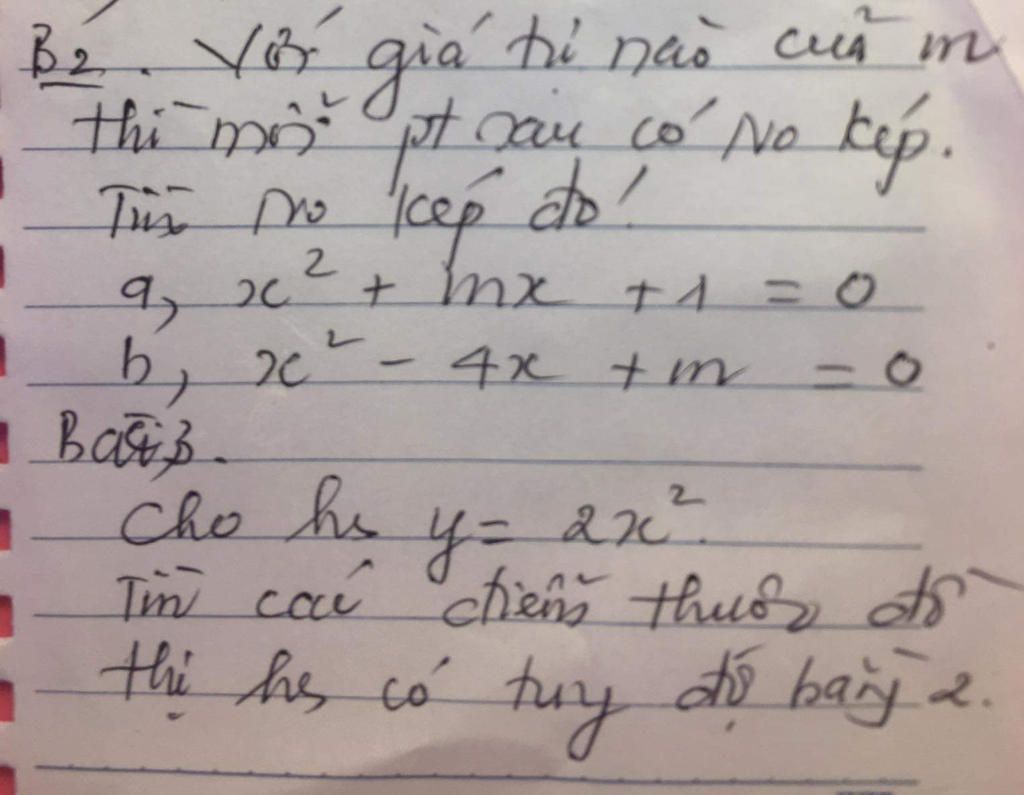 B2. Với giá trị nào của m
thì mỗi pt sau có No kép.
Tìm no kép đó!
a, x² + mx + 1 = 0
b, x² - 4x + m = 0
Bài 3.
Cho hs y = 2x².
Tìm các điểm thuộc đồ
thị hs có tung độ bằng 2.